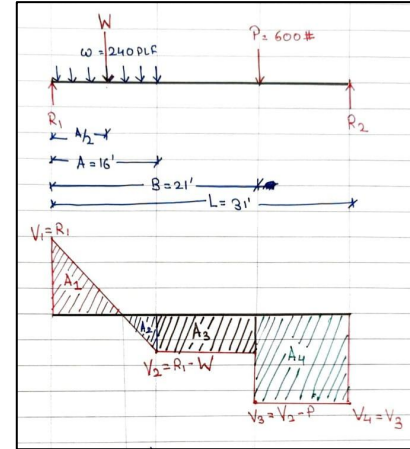 W
ω=240PLF
P=600#
R1
R2
A/2
A=16'
B=21'
L=31'
V1=R1
A1
A2
A3
A4
V2=R1-W
V3=V2-P
V4=V3